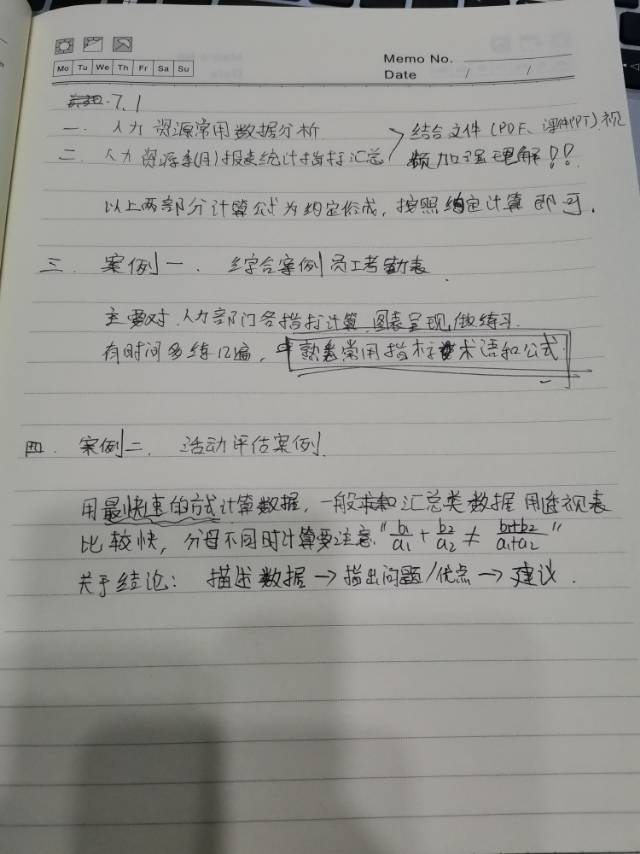 Memo No.
Mo Tu We Th Fr Sa Su
Date / /
7.1
一. 人力资源常用数据分析
二. 人力资源季(月)报表统计指标汇总
结合文件(PDF、课件PPT)视
频加强理解!!
以上两部分计算公式为约定俗成,按照约定计算即可.
三. 案例一. 综合案例员工考勤表
主要对人力部门各指标计算、图表呈现做练习.
有时间多练几遍, 熟悉常用指标术语和公式
四. 案例二. 活动评估案例.
用最快速的方式计算数据, 一般求和汇总类数据用透视表
比较快, 分母不同时计算要注意"b₁/a₁ + b₂/a₂ ≠ b₁+b₂/a₁+a₂"
关于结论: 描述数据→指出问题/优点→建议.